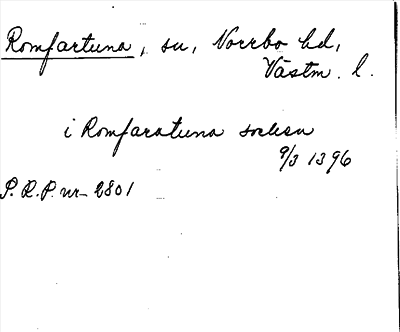 Romfartuna, sn, Norrbo hd,
Västm. l.
i Romfaratuna sockn
9/3 1396
S.R.P. nr 2801